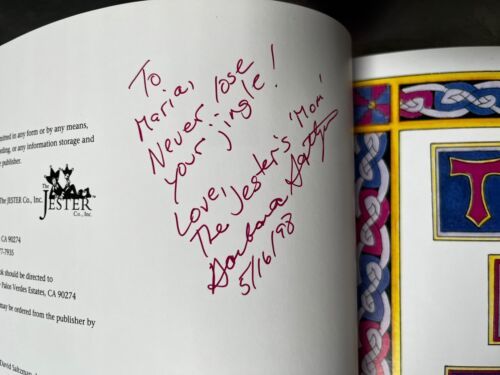 To
Maria,
Never lose
your jingle!
Love,
The Jester's 'Mom'
Barbara
5/16/98
mitted in any form or by any means,
ding, or any information storage and
e publisher.
The
JESTER
Co., Inc.
The JESTER Co., Inc.
CA 90274
77-7935
ok should be directed to
Palos Verdes Estates, CA 90274
may be ordered from the publisher by
David Saltzman
T